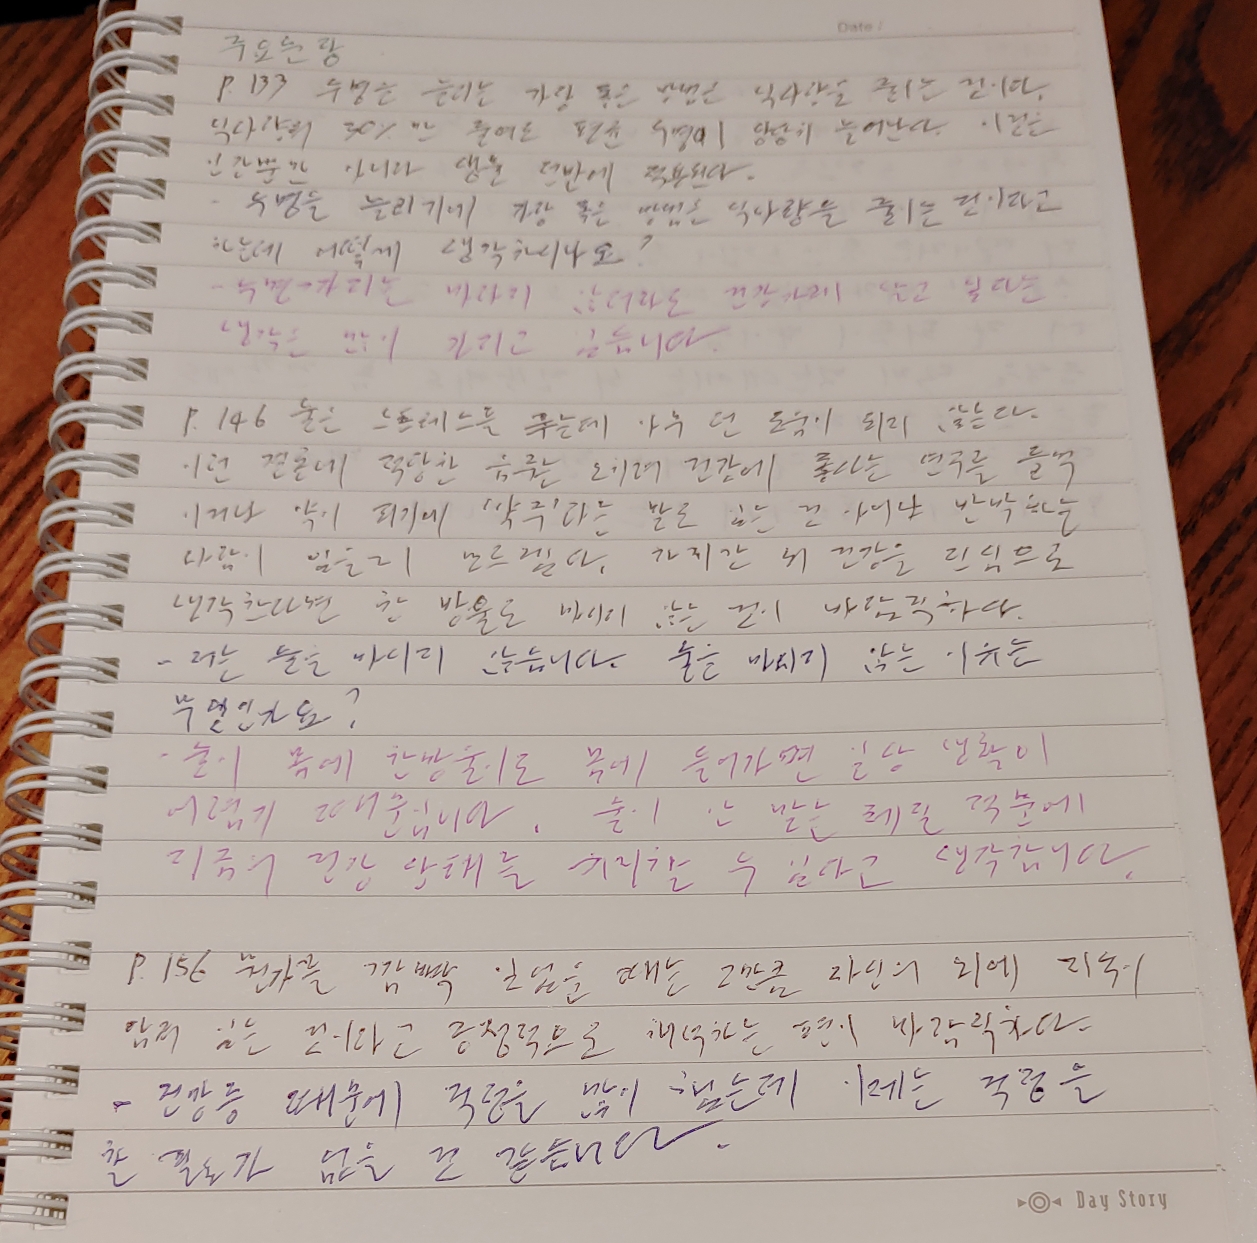 Date /
주요문장
P. 133 수명을 늘리는 가장 좋은 방법은 식사량을 줄이는 것이다.
식사량의 30%만 줄여도 평균 수명이 상당히 늘어난다. 이것은
인간뿐만 아니라 생물 전반에 적용된다.
- 수명을 늘리기에 가장 좋은 방법은 식사량을 줄이는 것이라고
하는데 어떻게 생각하시나요?
- 바라지 않더라도 건강하게 살고 싶다는
생각은 많이 가지고 있습니다.
P. 146 술은 스트레스를 푸는데 아무 런 도움이 되지 않는다.
이런 결론에 적당한 음주는 오히려 건강에 좋다는 연구를 들먹
이거나 약이 되기에 '약주'라는 말도 있는 것 아니냐 반박하는
사람이 있을지 모르겠다. 하지만 뇌 건강을 진심으로
생각한다면 한 방울도 마시지 않는 것이 바람직하다.
- 저는 술을 마시지 않습니다. 술은 마시지 않는 이유는
무얼인가요?
- 술이 몸에 한방울이도 몸에 들어가면 일상 생활이
어렵기 때문입니다. 술이 안 받는 체질 덕분에
지금의 건강 상태를 유지할 수 있다고 생각합니다.
P. 156 뭔가를 깜빡 잊었을 때는 그만큼 자신의 뇌에 지식이
쌓여 있는 것이라고 긍정적으로 해석하는 편이 바람직하다.
- 건망증 때문에 걱정을 많이 했는데 이제는 걱정을
할 필요가 없을 것 같습니다.
Day Story